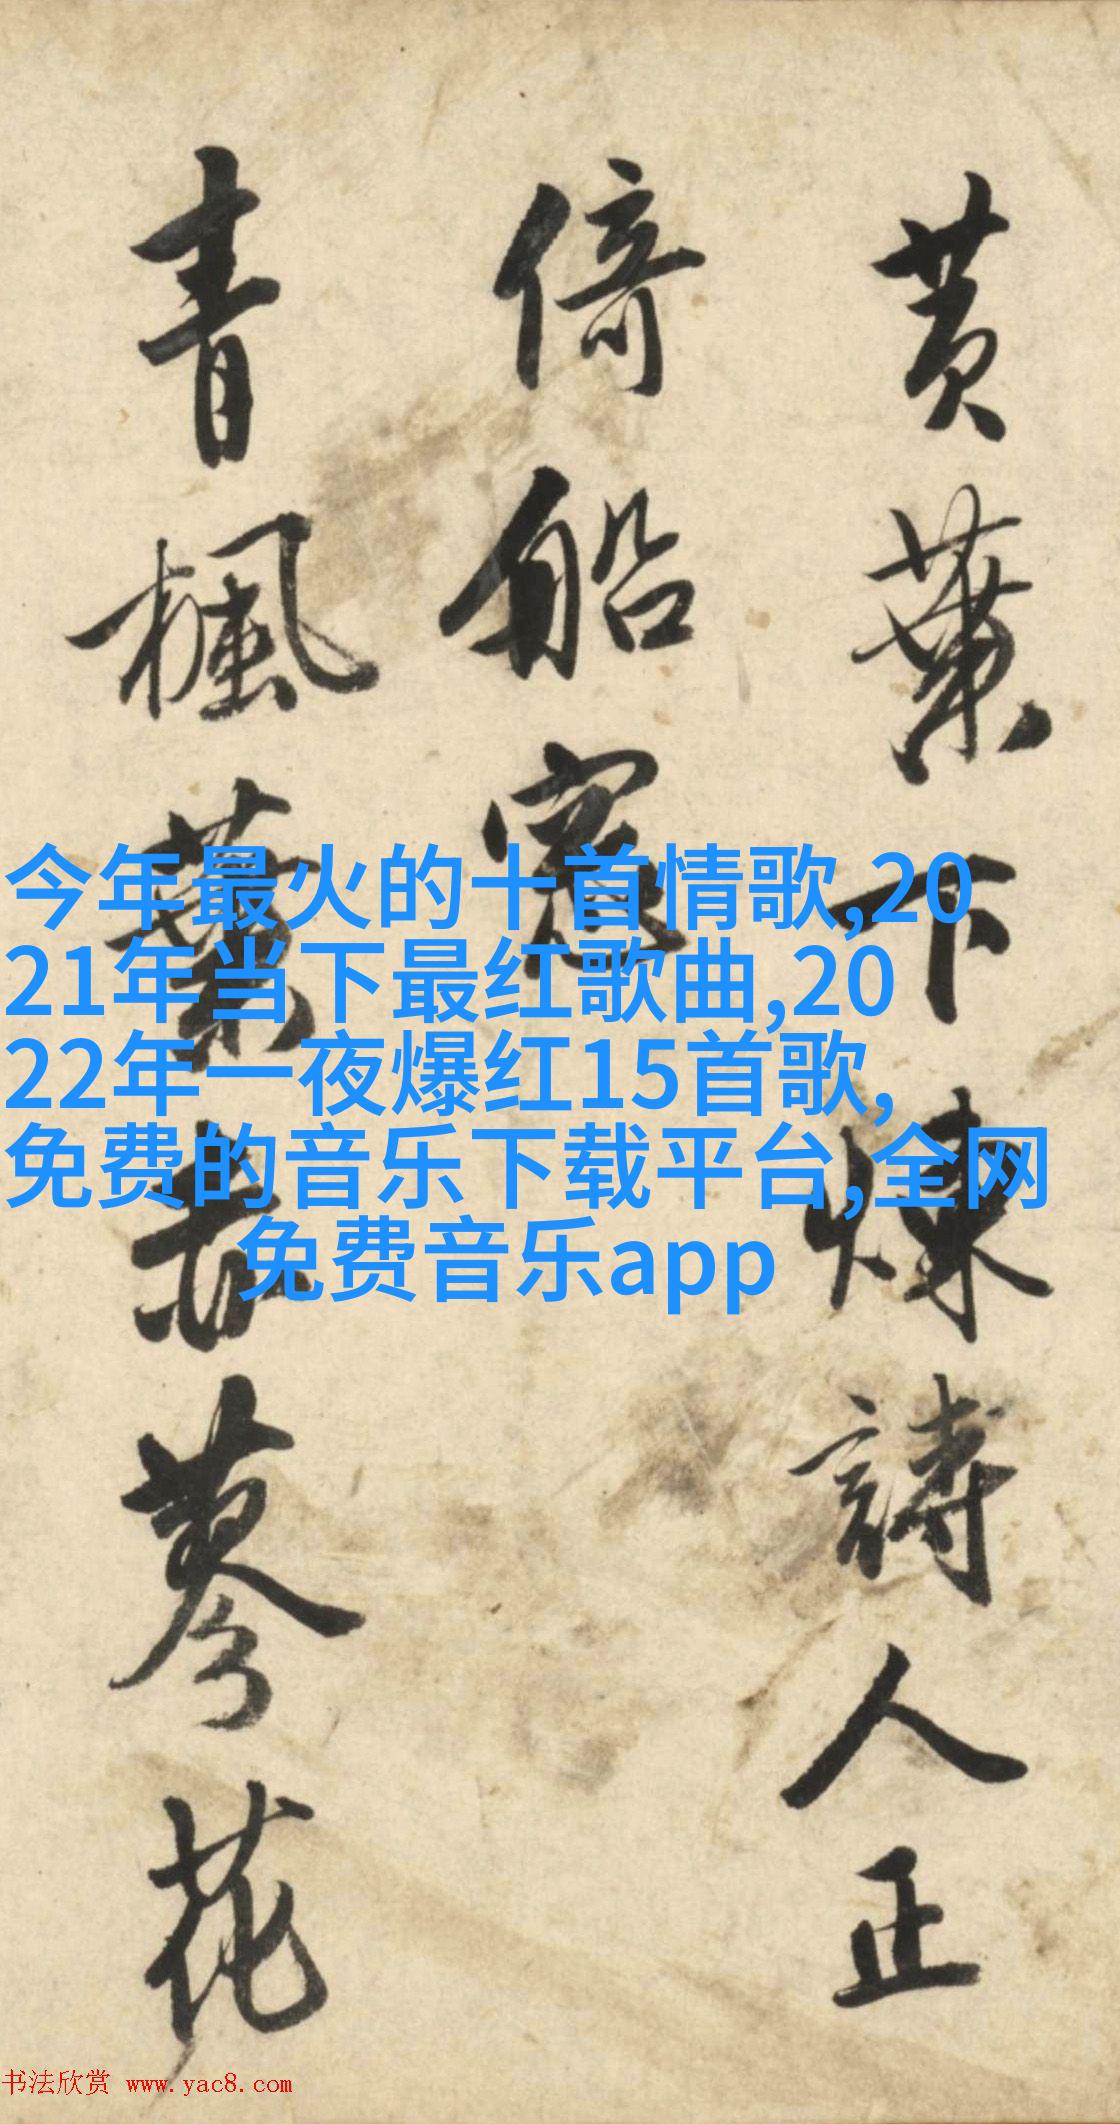 黄葉下煉詩人正
倚船窓
青楓葉赤蓼花
今年最火的十首情歌,20
21年当下最红歌曲,20
22年一夜爆红15首歌,
免费的音乐下载平台,全网
免费音乐app
书法欣赏 www.yac8.com